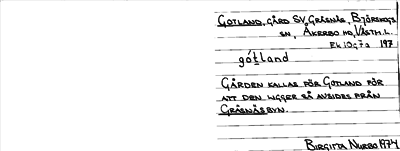 GOTLAND, GÅRD SV GRÄSNÄS, BJÖRSKOGS
SN, ÅKERBO HD, VÄSTM. L.
EK 10G7a 197
gótland
GÅRDEN KALLAS FÖR GOTLAND FÖR
ATT DEN LIGGER SÅ AVSIDES FRÅN
GRÄSNÄSBYN.
BIRGITTA NURBO 1974